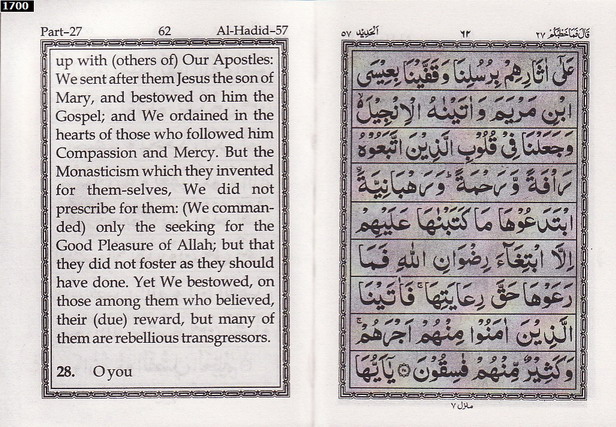 1700
Part–27 62 Al-Hadid–57
up with (others of) Our Apostles:
We sent after them Jesus the son of
Mary, and bestowed on him the
Gospel; and We ordained in the
hearts of those who followed him
Compassion and Mercy. But the
Monasticism which they invented
for them-selves, We did not
prescribe for them: (We comman-
ded) only the seeking for the
Good Pleasure of Allah; but that
they did not foster as they should
have done. Yet We bestowed, on
those among them who believed,
their (due) reward, but many of
them are rebellious transgressors.
28. O you
قَالَ فَمَا خَطْبُكُمْ ٢٧ ٦٢ اَلْحَدِيْد ٥٧
عَلٰٓى اٰثَارِهِمْ بِرُسُلِنَا وَقَفَّيْنَا بِعِيْسَى
ابْنِ مَرْيَمَ وَاٰتَيْنٰهُ الْاِنْجِيْلَ ۙ
وَجَعَلْنَا فِيْ قُلُوْبِ الَّذِيْنَ اتَّبَعُوْهُ
رَاْفَةً وَّرَحْمَةً ؕ وَرَهْبَانِيَّةَ ۨ
ابْتَدَعُوْهَا مَا كَتَبْنٰهَا عَلَيْهِمْ
اِلَّا ابْتِغَآءَ رِضْوَانِ اللّٰهِ فَمَا
رَعَوْهَا حَقَّ رِعَايَتِهَا ۚ فَاٰتَيْنَا
الَّذِيْنَ اٰمَنُوْا مِنْهُمْ اَجْرَهُمْ ۚ
وَكَثِيْرٌ مِّنْهُمْ فٰسِقُوْنَ ﴿۲۷﴾ يٰۤاَيُّهَا
منزل ٧